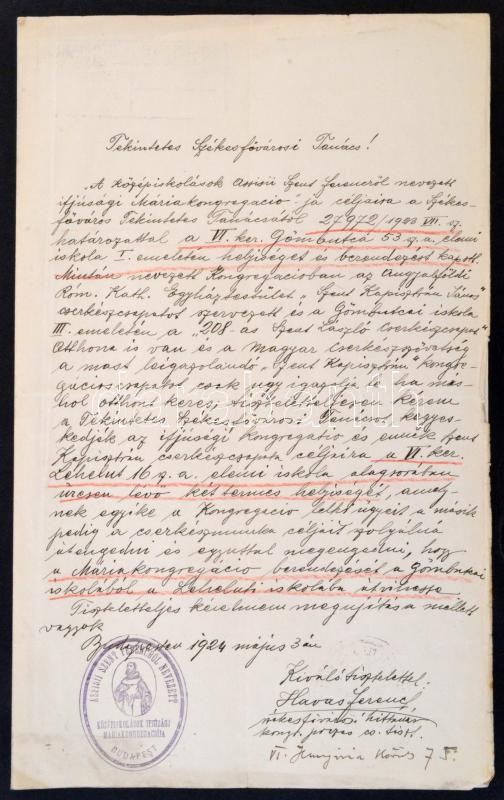 Tekintetes Székesfővárosi Tanács!
"A középiskolások Assisii Szent Ferencről nevezett
ifjúsági Máriakongregáció"-ja céljaira a Székes-
főváros Tekintetes Tanácsától 27972/1923 VII. sz.
határozattal a VI. ker. Gömbutca 53 sz. a. elemi
iskola I. emeletén helyiséget és berendezést kapott.
Mintán nevezett Kongregációban az Angyalföldi
Róm. Kath. Egyháztestület "Szent Kapisztrán János"
cserkészcsapatot szervezett és a Gömbutcai iskola
III. emeletén a "208-as Szent László Cserkészcsapat"
Otthona is van és a Magyar Cserkészszövetség
a most leigazolandó "Szent Kapisztrán" kongre-
gációs csapatot csak úgy igazolja le ha más-
hol otthont keres, tiszteletteljesen kérem
a Tekintetes Székesfővárosi Tanácsot, kegyes-
kedjék az ifjúsági kongregatio és ennek Szent
Kapisztrán cserkészcsapata céljaira a VI. ker.
Lehelut 16 sz. a. elemi iskola alagsorában
üresen lévő két termes helyiségét, amely-
nek egyike a Kongregáció lelki ügyeit a másik
pedig a cserkészmunka céljait szolgálná
átengedni és egyuttal megengedni, hogy
a Máriakongregáció berendezését a Gömbutcai
iskolából a Leheluti iskolába átvihesse.
Tiszteletteljes kérelmem megujitása mellett
vagyok
Budapesten 1924 május 3án
Kiváló tisztelettel:
Havas Ferenc
székesfővárosi hittanár
VI. Hungária Körút 7 5.
ASSISII SZENT FERENCRŐL NEVEZETT
KÖZÉPISKOLÁSOK IFJÚSÁGI
MÁRIAKONGREGÁCIÓJA
BUDAPEST